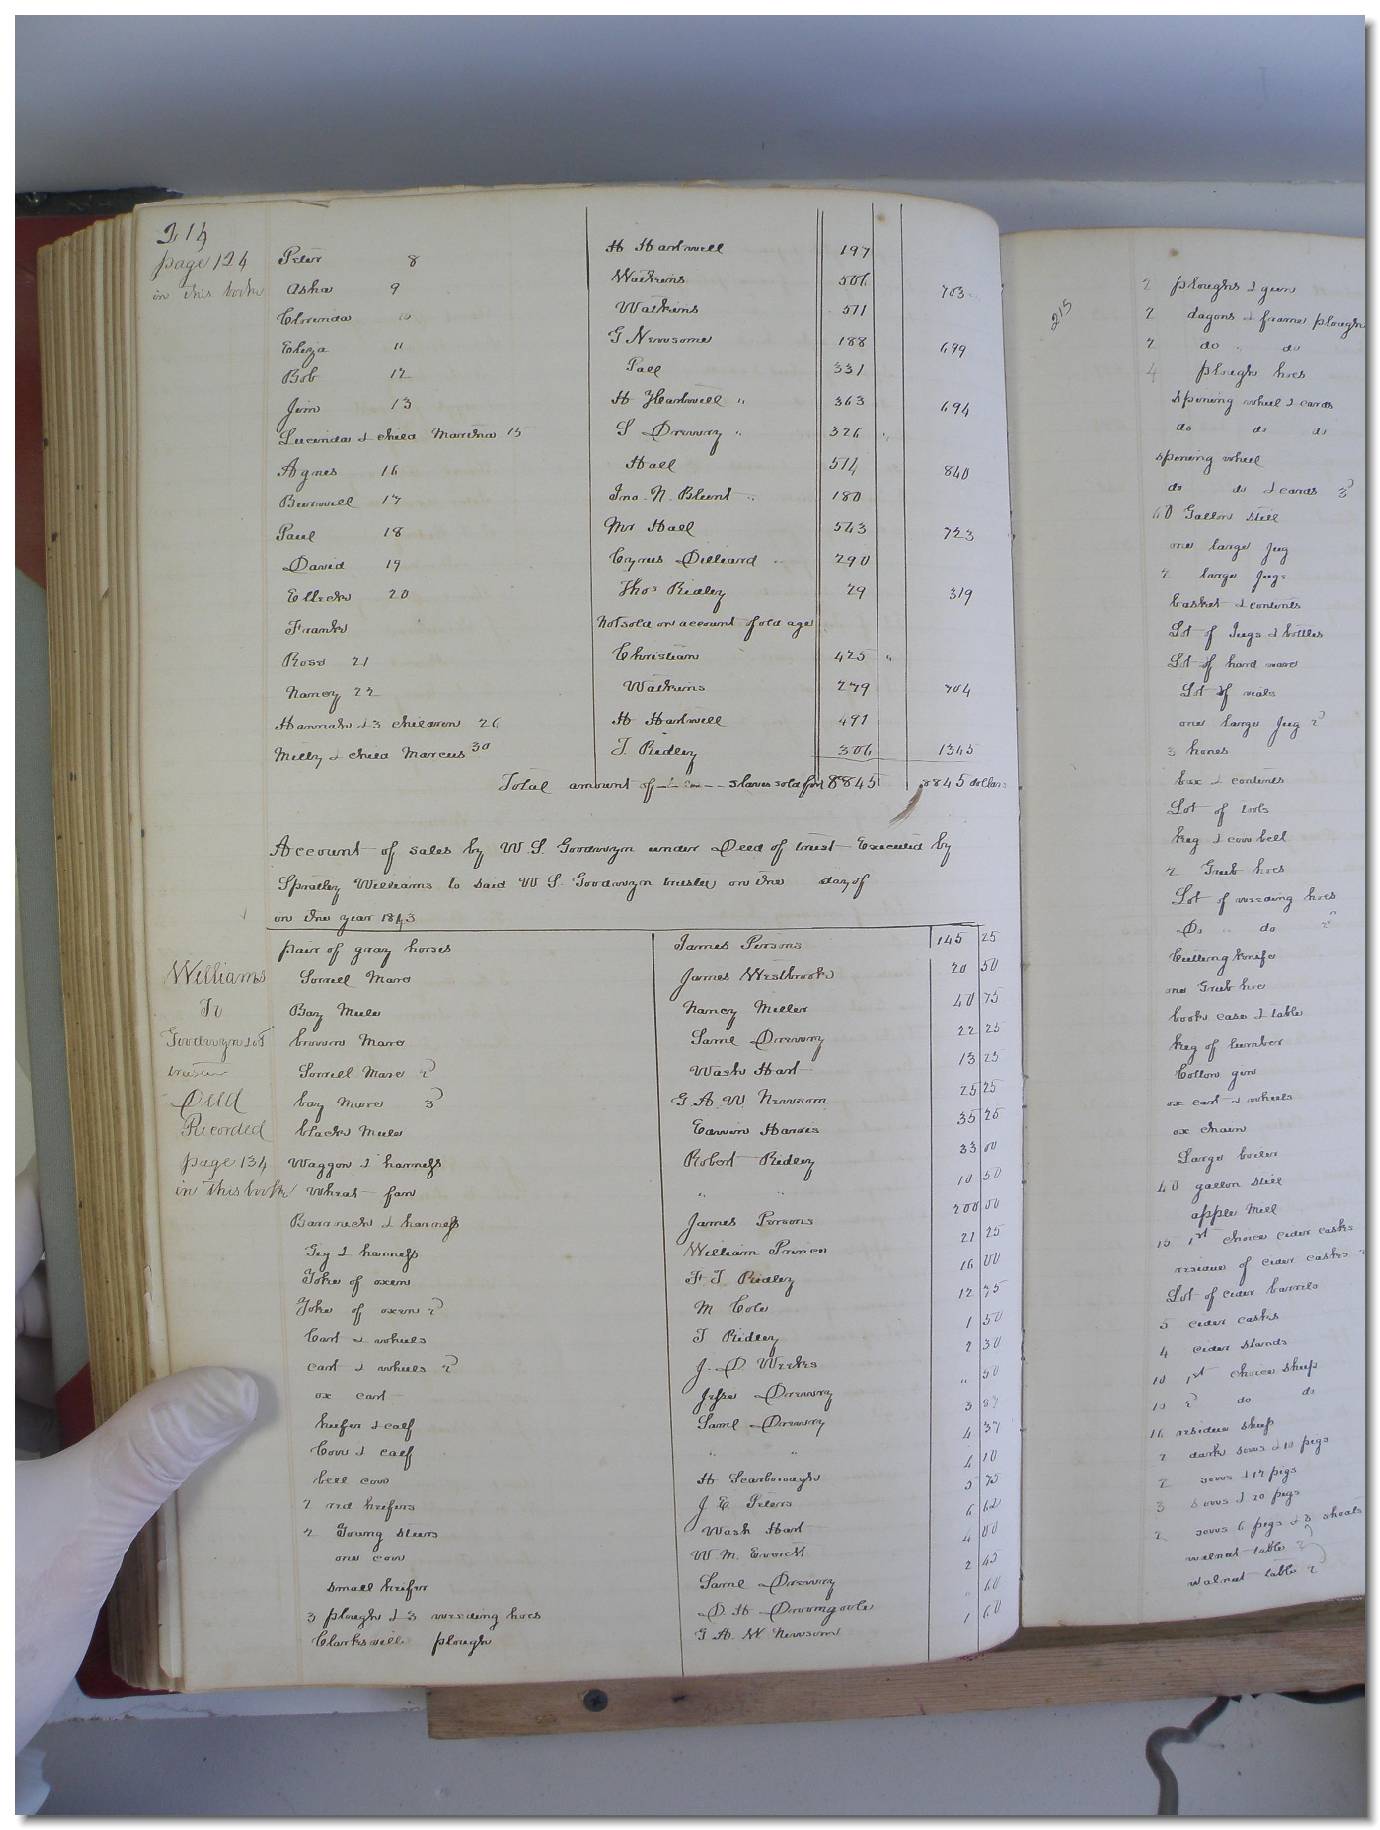 214
page 124
in this book
Peter 8 H Hartwell 197
Asha 9 Watkins 506 703
Clorinda 10 Watkins 511
Eliza 11 G Newsome 188 699
Bob 12 Pall 331
Jim 13 H Hartwell " 363 694
Lucinda & child Martha 15 S Drewry " 326 "
Agnes 16 Hall 514 840
Burwell 17 Jno. N. Blunt " 180
Paul 18 Mr Hall 543 723
David 19 Cyrus Dilliard " 290
Elleck 20 Thos Ridley 29 319
Frank Not sold on account of old age
Rose 21 Christian 425 "
Nancy 22 Watkins 279 704
Hannah & 3 children 26 H Hartwell 491
Milly & child Marcus 30 T. Ridley 306 1345
Total amount of slaves sold for 8845 8845 dollars
Account of sales by W. S. Goodwyn under Deed of trust Executed by
Spratley Williams to said W S. Goodwyn trustee on the day of
in the year 1843
Williams
To
Goodwyn
trustee
Deed
Recorded
page 134
in this book
pair of gray horses James Persons 145 25
Sorrell Mare James Westbrook 20 50
Bay Mule Nancy Miller 40 75
brown Mare Saml Drewry 22 25
Sorrell Mare 2 Wash Hart 13 25
bay Mare 3 G. A. W. Newsom 25 25
black Mule Edwin Harris 35 25
Waggon & harness Robert Ridley 33 00
Wheat fan " " 10 50
Barrouch & harness James Persons 200 00
Gig & harness William Prince 21 25
Yoke of oxen F. T. Ridley 16 00
Yoke of oxen 2 M Cole 12 75
Cart & wheels T Ridley 1 50
cart & wheels 2 J. D. Weeks 2 30
ox cart Jesse Drewry " 50
heifer & calf Saml Drewry 3
Cow & calf " " 4 37
bell cow H Scarborough 4 10
2 red heifers J. E. Peters 5 75
2 Young steers Wash Hart 6 62
one cow W. M. 4 00
small heifer Saml Drewry 2 45
3 plough & 3 weeding hoes D. H. Dromgoole " 60
Clarksville plough G. A. W Newsom 1 60
215
2 ploughs & gun
2 dagons & frame plough
2 do " do
4 plough hoes
spining wheel & cards
do do do
spining wheel
do do & cards 3
60 Gallon still
one large Jug
2 large Jugs
basket & contents
Lot of Jugs & bottles
Lot of hard ware
Lot of vials
one large Jug 2
3 hones
box & contents
Lot of tools
keg & cow bell
2 Grub hoes
Lot of weeding hoes
Do " do 2
Cutting knife
one Grub hoe
book case & table
keg of lumber
Cotton gin
ox cart & wheels
ox chain
Large boiler
40 gallon still
apple Mill
15 1st choice cider casks
residue of cider casks
Lot of cider barrels
5 cider casks
4 cider stands
10 1st choice sheep
10 2 do do
16 residue sheep
2 dark sows & 10 pigs
2 sows & 17 pigs
3 sows & 20 pigs
2 sows 6 pigs & 3 shoats
walnut table
walnut table 2